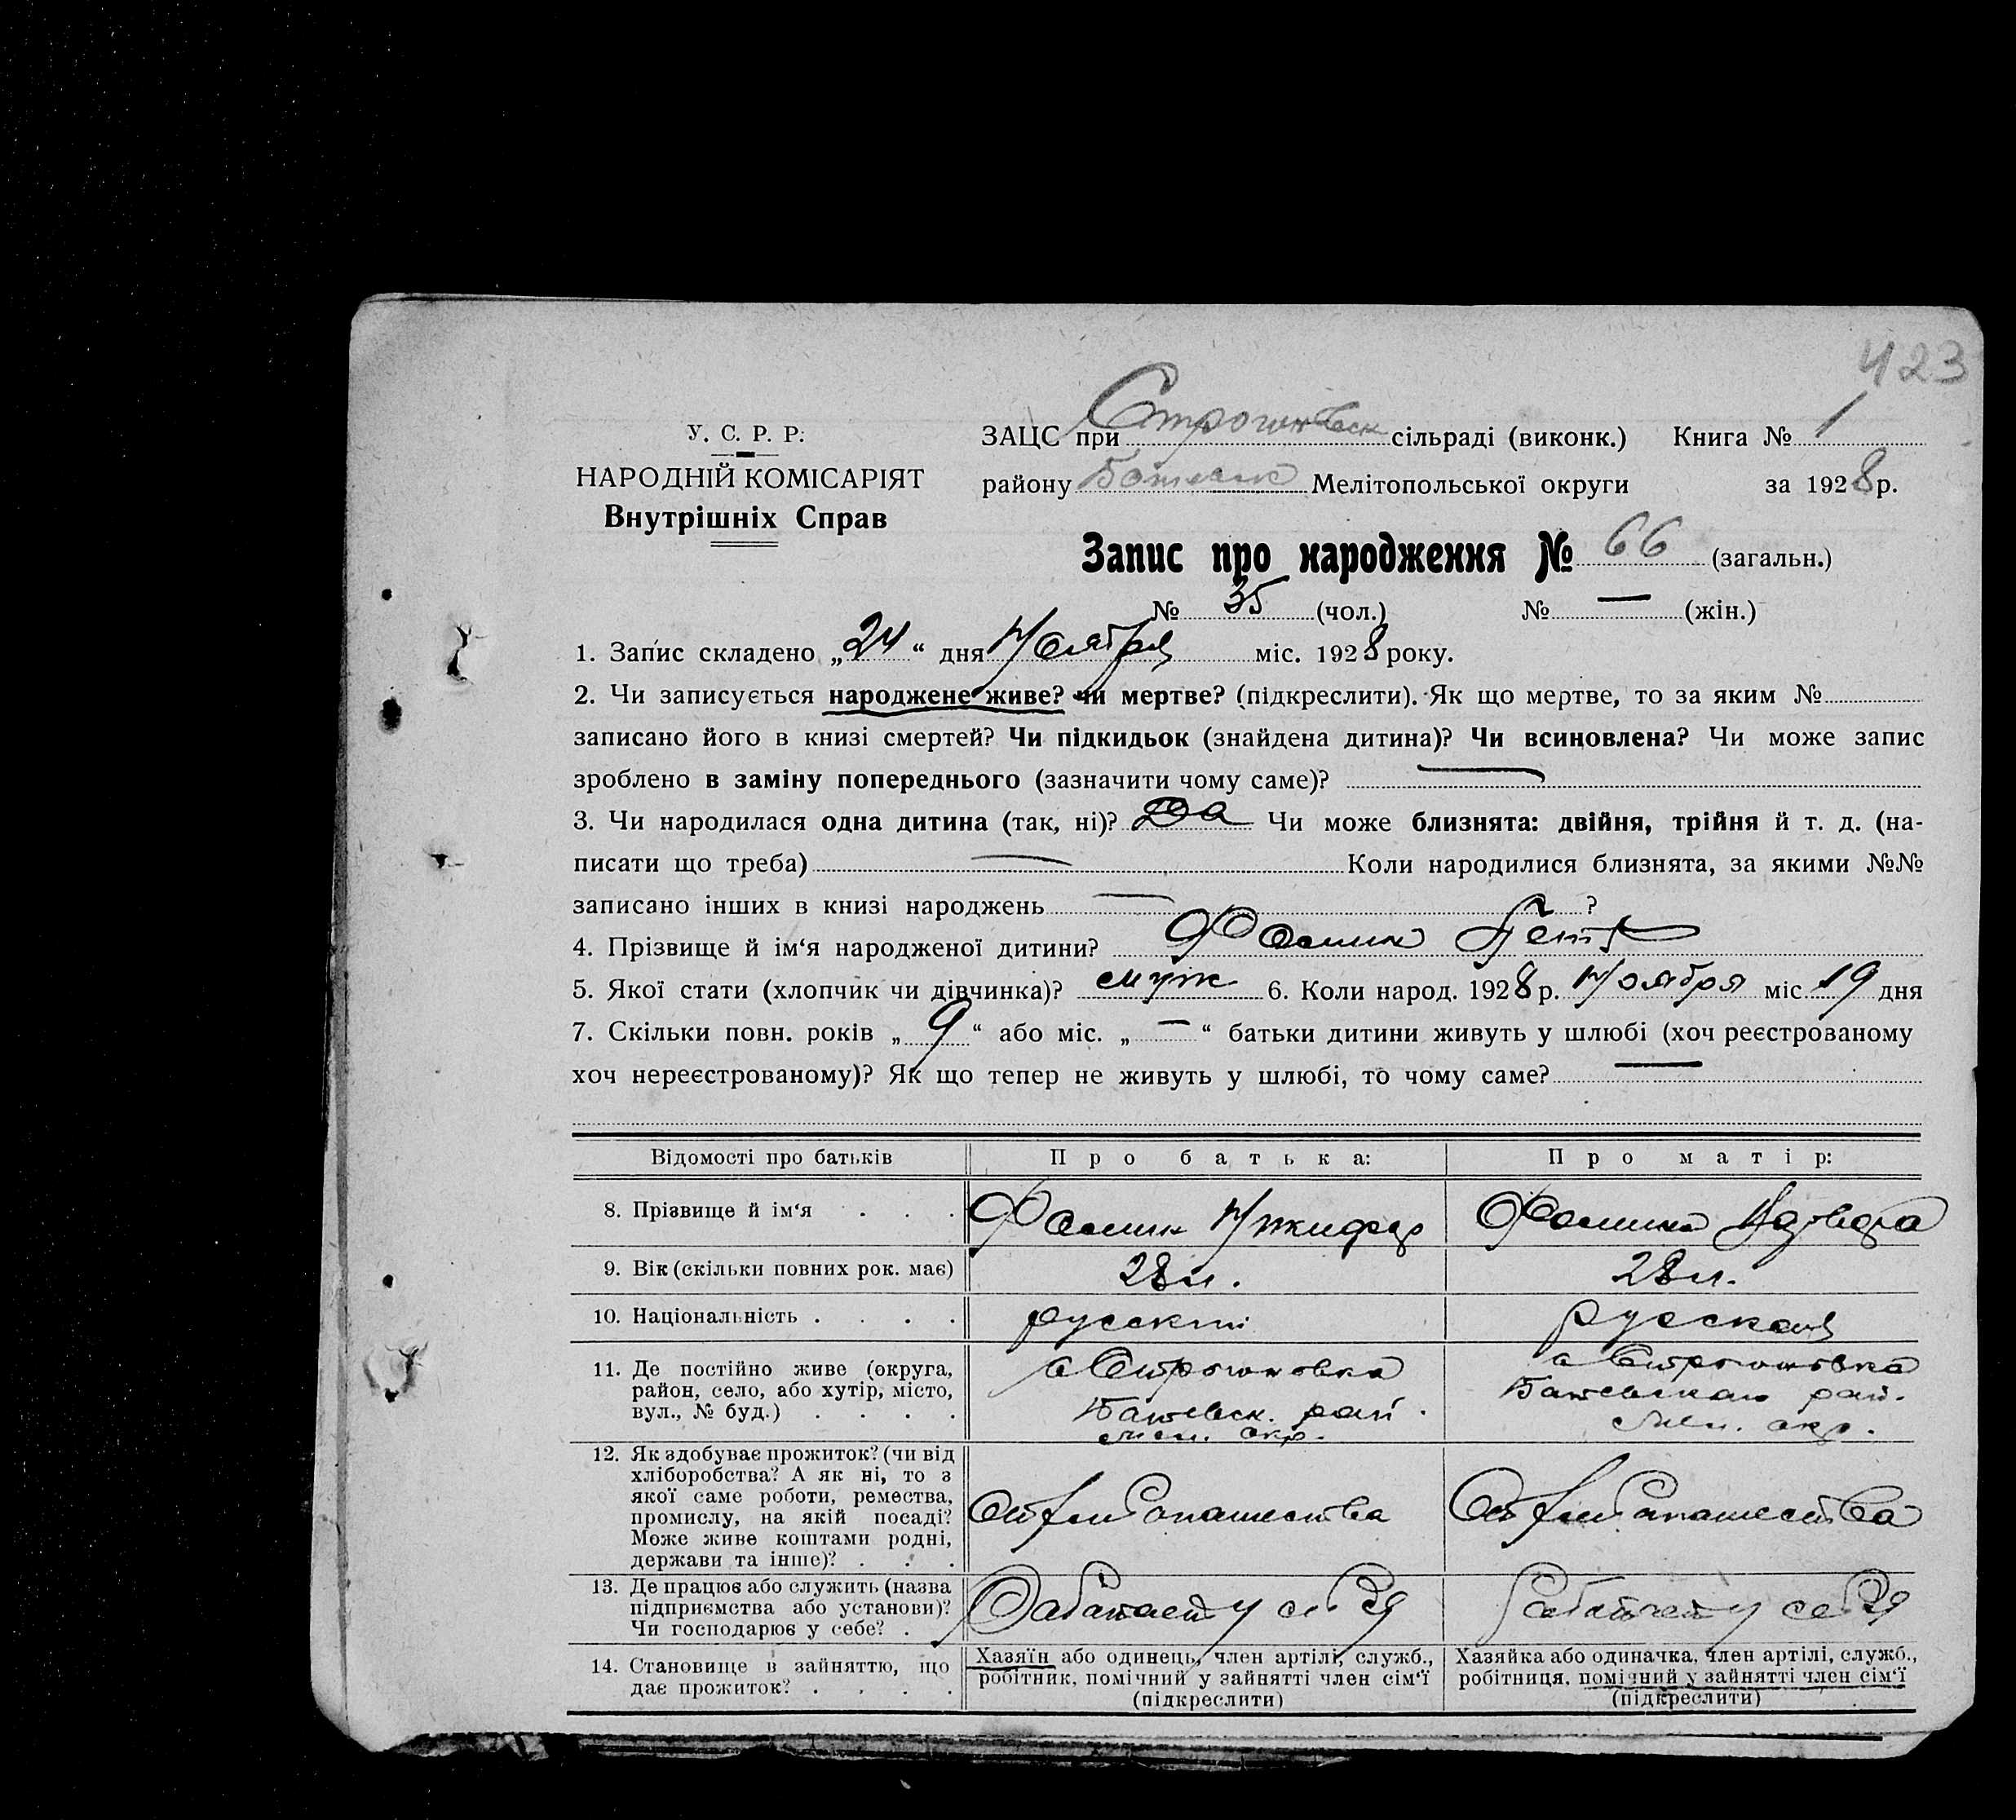 423
У. С. Р. Р.
НАРОДНІЙ КОМІСАРІЯТ
Внутрішніх Справ
ЗАЦС при Строгановск сільраді (виконк.) Книга № 1
району Мелітопольської округи за 1928 р.
Запис про народження № 66 (загальн.)
№ 35 (чол.) № — (жін.)
1. Запис складено „24“ дня Ноября міс. 1928 року.
2. Чи записується народжене живе? чи мертве? (підкреслити). Як що мертве, то за яким №
записано його в книзі смертей? Чи підкидьок (знайдена дитина)? Чи всиновлена? Чи може запис
зроблено в заміну попереднього (зазначити чому саме)? —
3. Чи народилася одна дитина (так, ні)? Да Чи може близнята: двійня, трійня й т. д. (на-
писати що треба) — Коли народилися близнята, за якими №№
записано інших в книзі народжень — ?
4. Прізвище й ім‘я народженої дитини? Фомин Петр
5. Якої стати (хлопчик чи дівчинка)? муж 6. Коли народ. 1928 р. Ноября міс 19 дня
7. Скільки повн. років „9“ або міс. „—“ батьки дитини живуть у шлюбі (хоч реєстрованому
хоч нереєстрованому)? Як що тепер не живуть у шлюбі, то чому саме? —
Відомості про батьків Про батька: Про матір:
8. Прізвище й ім‘я . . . Фомин Никифор Фомина
9. Вік (скільки повних рок. має) 28 л. 28 л.
10. Національність . . . . русский русская
11. Де постійно живе (округа,
район, село, або хутір, місто,
вул., № буд.) . . . .
с Строгановка
рай.
Мел. окр.
с Строгановка
рай.
Мел. окр.
12. Як здобуває прожиток? (чи від
хліборобства? А як ні, то з
якої саме роботи, ремества,
промислу, на якій посаді?
Може живе коштами родні,
держави та інше)? . . .
От хлебопашества От хлебопашества
13. Де працює або служить (назва
підприємства або установи)?
Чи господарює у себе? .
Работает у себя Работает у себя
14. Становище в зайняттю, що
дає прожиток? . . . .
Хазяїн або одинець, член артілі, служб.,
робітник, помічний у зайнятті член сім‘ї
(підкреслити)
Хазяйка або одиначка, член артілі, служб.,
робітниця, помічний у зайнятті член сім‘ї
(підкреслити)